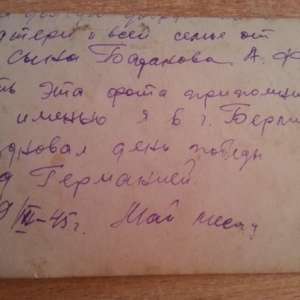 матери и всей семье от
сына Баданова А. Ф
эта фото припомни
именно я в г. Берли
день победы
Германией
-45г. Май месяц